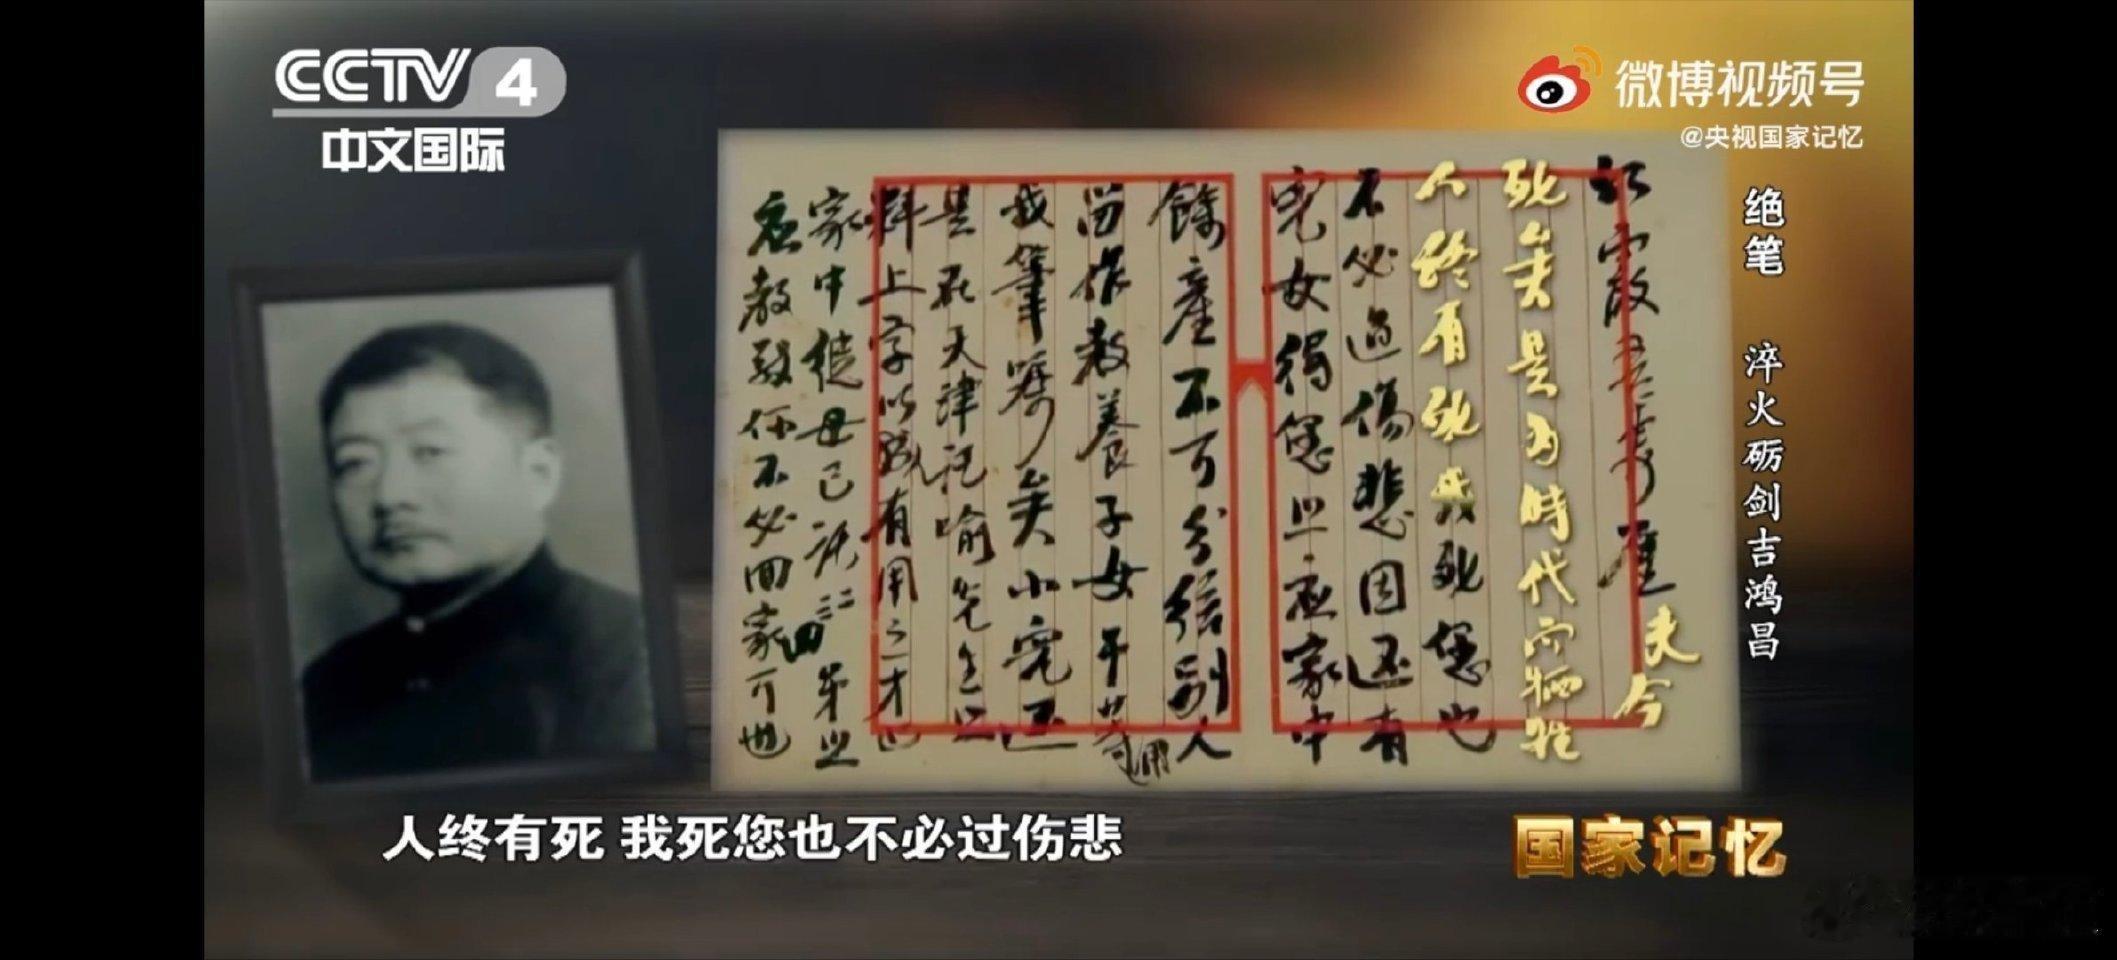 CCTV 4
中文国际
微博视频号
@央视国家记忆
绝笔 淬火砺剑吉鸿昌
红霞吾妻鉴
夫今
死矣是为时代而牺牲
人终有死我死您也
不必过傷悲因还有
兒女得您照应家中
餘產不可分给别人
留作教養子女干等用
我筆嘱矣小兒还
是在天津託喻先生照
料上学以成有用之才也
家中继母已託二三四弟照
应教敬你不必回家可也
人终有死 我死您也不必过伤悲
国家记忆